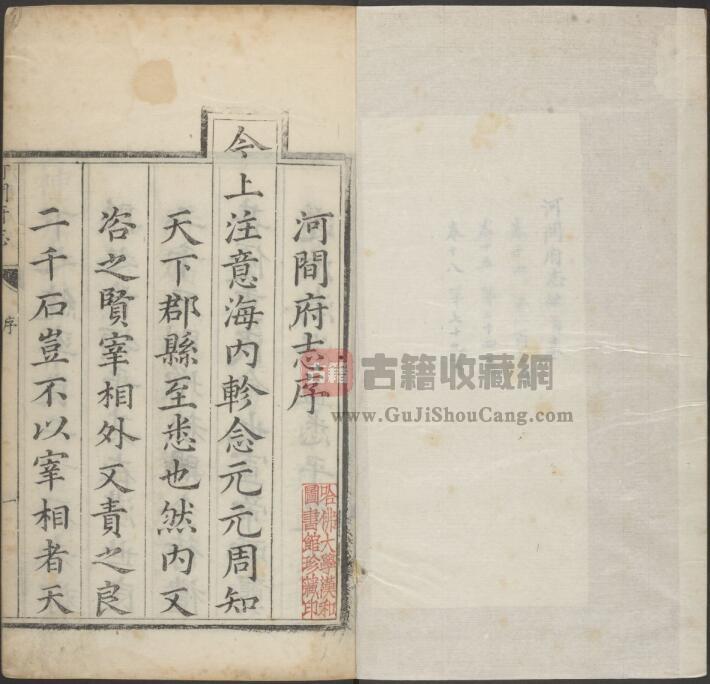 河間府志序
今上注意海内軫念元元周知
天下郡縣至悉也然内又
咨之賢宰相外又責之良
二千石豈不以宰相者天
序
一
哈佛大學漢和
圖書館珍藏印
古籍 古籍收藏網
www.GuJiShouCang.com